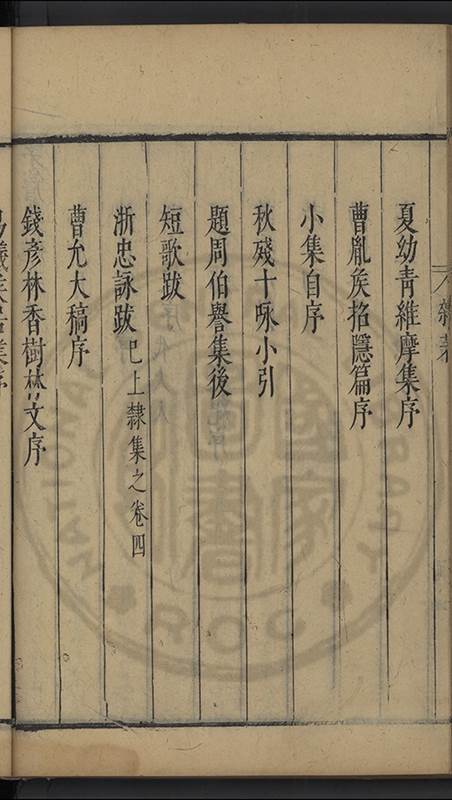 夏幼青維摩集序
曹胤矦招隱篇序
小集自序
秋殘十咏小引
題周伯譽集後
短歌跋
浙忠詠跋 已上隸集之卷四
曹允大稿序
錢彥林香樹林文序